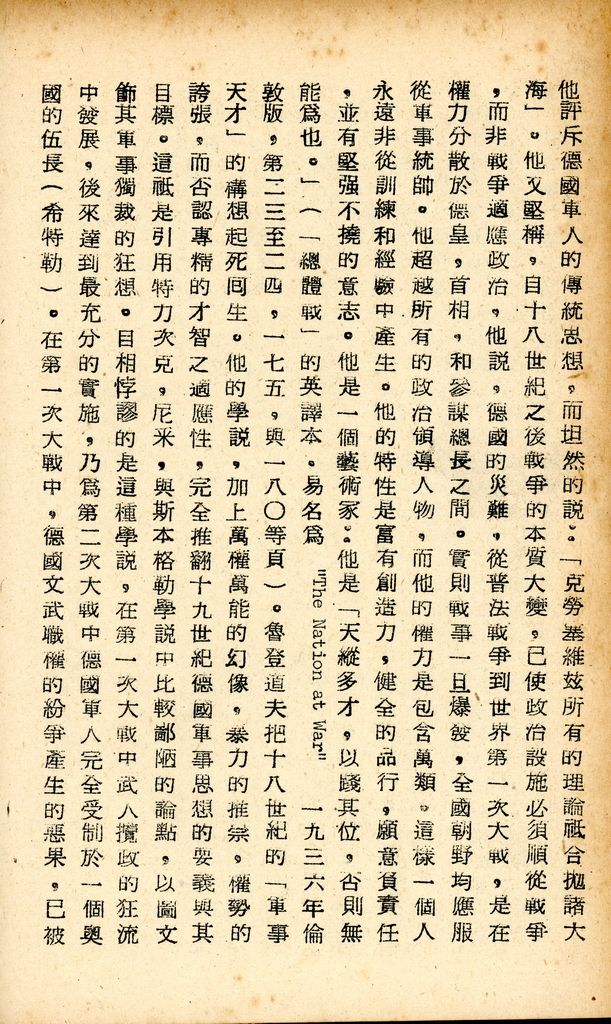 他評斥德國軍人的傳統思想，而坦然的說：「克勞塞維玆所有的理論祇合拋諸大
海」。他又堅稱，自十八世紀之後戰爭的本質大變，已使政治設施必須順從戰爭
，而非戰爭適應政治，他說，德國的災難，從普法戰爭到世界第一次大戰，是在
權力分散於德皇，首相，和參謀總長之間。實則戰事一旦爆發，全國朝野均應服
從軍事統帥。他超越所有的政治領導人物，而他的權力是包含萬類。這樣一個人
永遠非從訓練和經驗中產生。他的特性是富有創造力，健全的品行，願意負責任
，並有堅强不撓的意志。他是一個藝術家。他是「天縱多才，以踐其位，否則無
能爲也。」（「總體戰」的英譯本。易名爲 "The Nation at War" 一九三六年倫
敦版，第二三至二四，一七五，與一八〇等頁）。魯登道夫把十八世紀的「軍事
天才」的構想起死回生。他的學說，加上萬權萬能的幻像，暴力的推崇。權勢的
誇張，而否認專精的才智之適應性，完全推翻十九世紀德國軍事思想的要義與其
目標。這祇是引用特力次克，尼采，與斯本格勒學說中比較鄙陋的論點，以圖文
飾其軍事獨裁的狂想。目相悖謬的是這種學說，在第一次大戰中武人攬政的狂流
中發展，後來達到最充分的實施，乃爲第二次大戰中德國軍人完全受制於一個奧
國的伍長（希特勒）。在第一次大戰中，德國文武職權的紛爭產生的惡果，已被